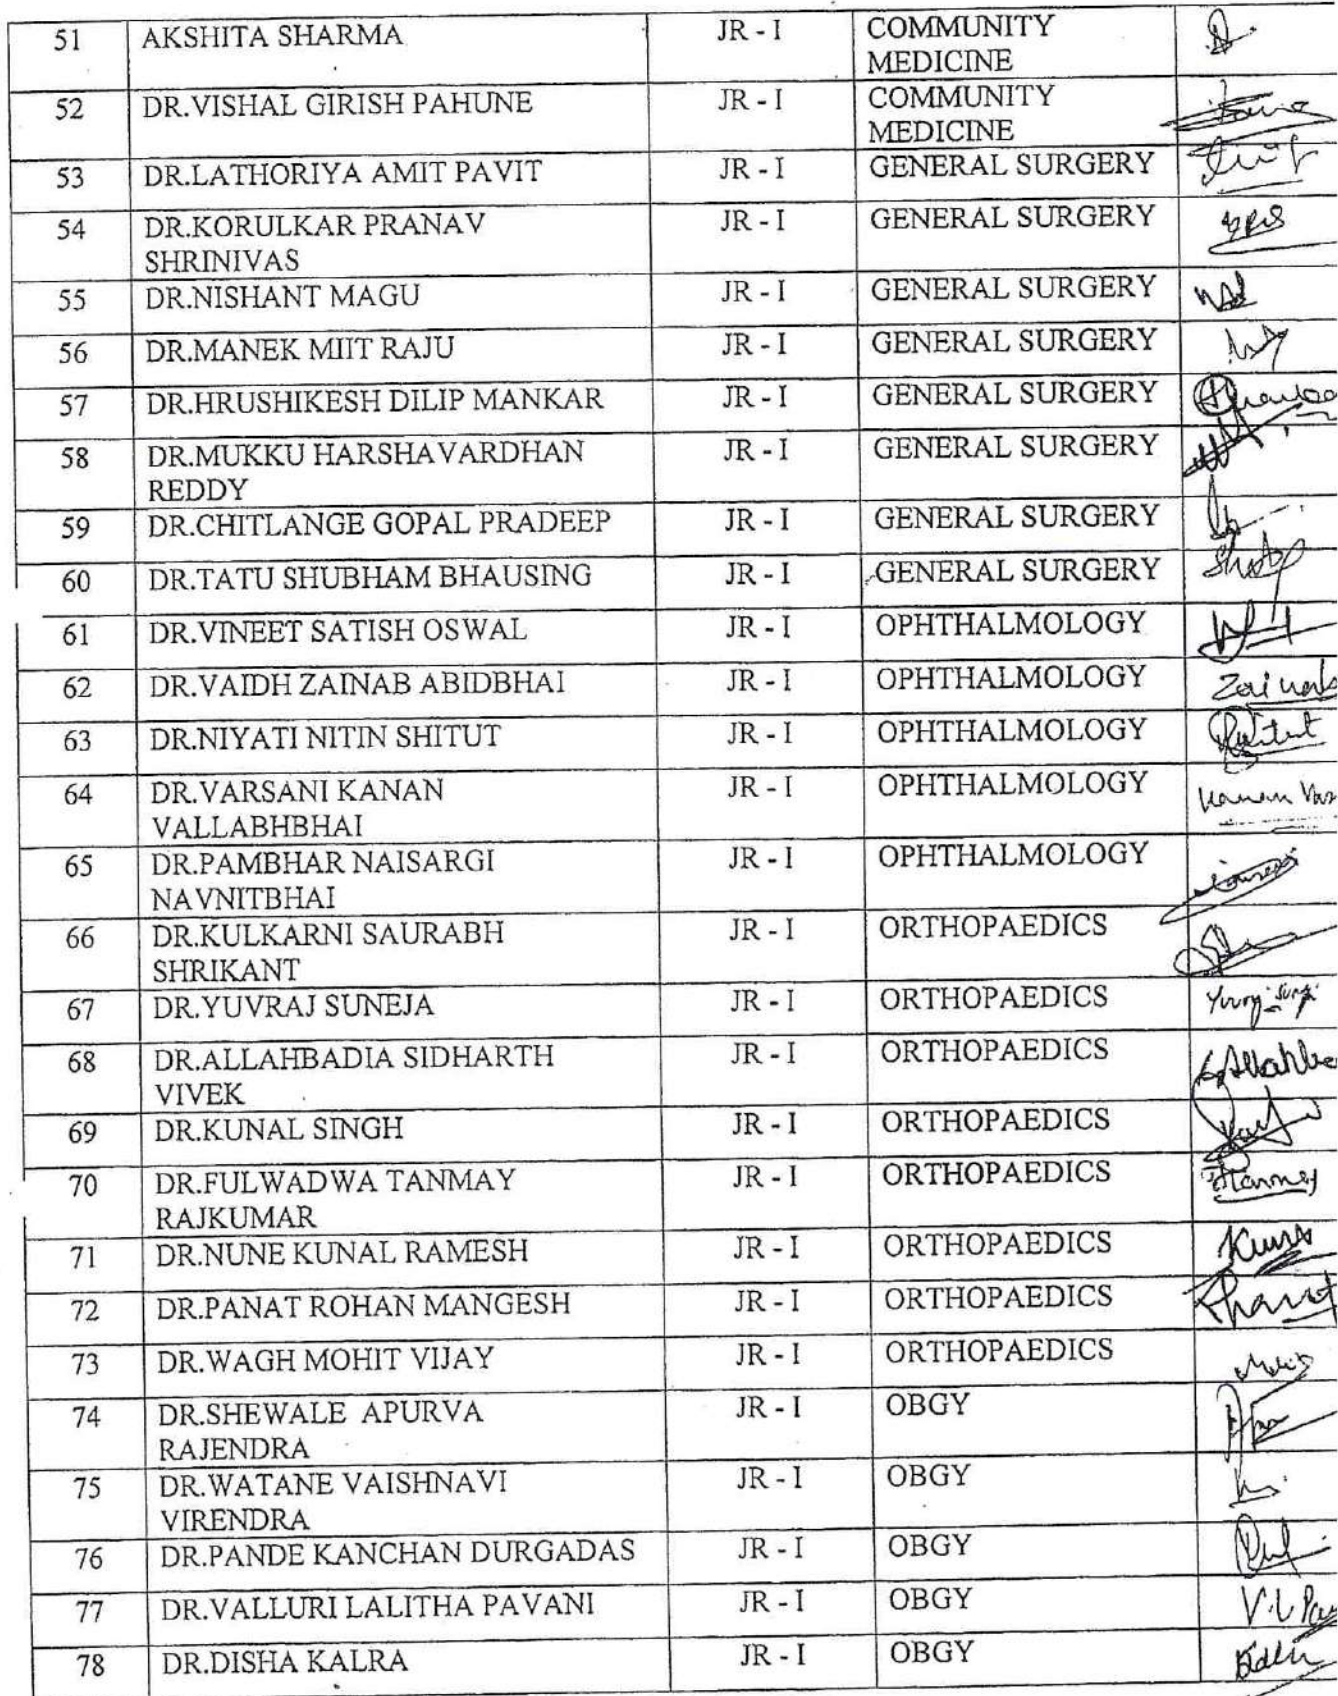 51 AKSHITA SHARMA JR - I COMMUNITY
MEDICINE
52 DR.VISHAL GIRISH PAHUNE JR - I COMMUNITY
MEDICINE
53 DR.LATHORIYA AMIT PAVIT JR - I GENERAL SURGERY
54 DR.KORULKAR PRANAV JR - I GENERAL SURGERY
SHRINIVAS
55 DR.NISHANT MAGU JR - I GENERAL SURGERY
56 DR.MANEK MIIT RAJU JR - I GENERAL SURGERY
57 DR.HRUSHIKESH DILIP MANKAR JR - I GENERAL SURGERY
58 DR.MUKKU HARSHAVARDHAN JR - I GENERAL SURGERY
REDDY
59 DR.CHITLANGE GOPAL PRADEEP JR - I GENERAL SURGERY
60 DR.TATU SHUBHAM BHAUSING JR - I GENERAL SURGERY
61 DR.VINEET SATISH OSWAL JR - I OPHTHALMOLOGY
62 DR.VAIDH ZAINAB ABIDBHAI JR - I OPHTHALMOLOGY
63 DR.NIYATI NITIN SHITUT JR - I OPHTHALMOLOGY
64 DR.VARSANI KANAN JR - I OPHTHALMOLOGY
VALLABHBHAI
65 DR.PAMBHAR NAISARGI JR - I OPHTHALMOLOGY
NAVNITBHAI
66 DR.KULKARNI SAURABH JR - I ORTHOPAEDICS
SHRIKANT
67 DR.YUVRAJ SUNEJA JR - I ORTHOPAEDICS
68 DR.ALLAHBADIA SIDHARTH JR - I ORTHOPAEDICS
VIVEK
69 DR.KUNAL SINGH JR - I ORTHOPAEDICS
70 DR.FULWADWA TANMAY JR - I ORTHOPAEDICS
RAJKUMAR
71 DR.NUNE KUNAL RAMESH JR - I ORTHOPAEDICS
72 DR.PANAT ROHAN MANGESH JR - I ORTHOPAEDICS
73 DR.WAGH MOHIT VIJAY JR - I ORTHOPAEDICS
74 DR.SHEWALE APURVA JR - I OBGY
RAJENDRA
75 DR.WATANE VAISHNAVI JR - I OBGY
VIRENDRA
76 DR.PANDE KANCHAN DURGADAS JR - I OBGY
77 DR.VALLURI LALITHA PAVANI JR - I OBGY
78 DR.DISHA KALRA JR - I OBGY